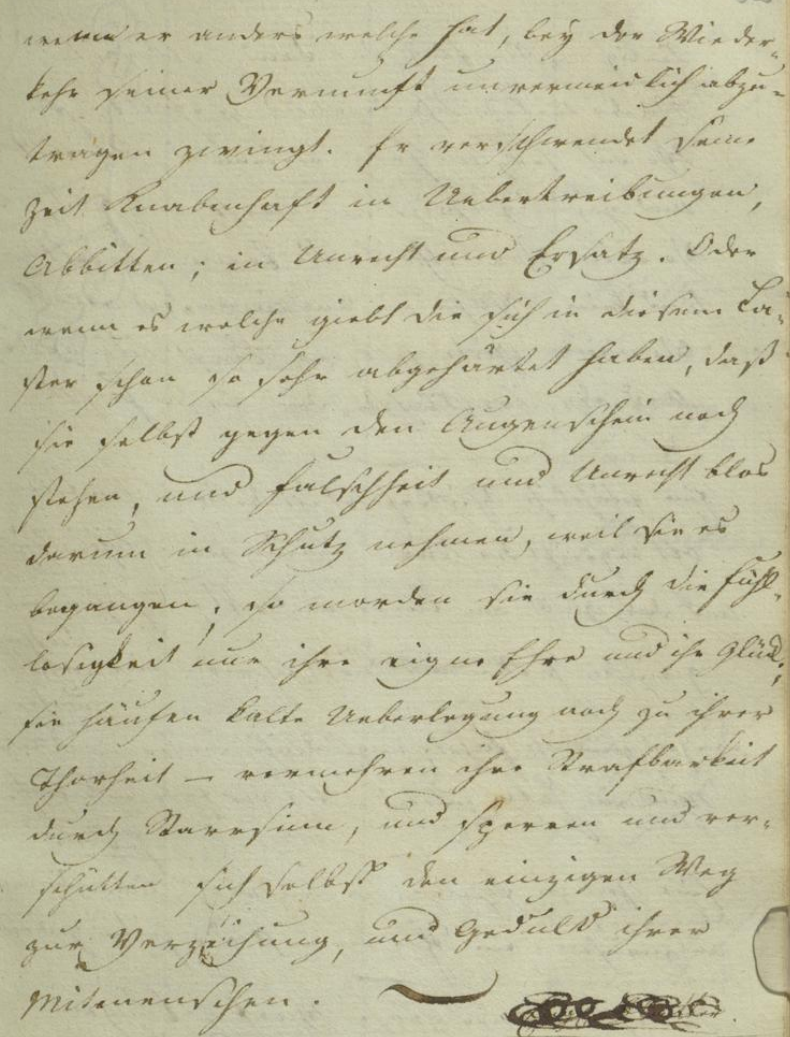 wenn er anders welche hat, bey der Wieder-
kehr seiner Vernunft unvermeidlich abzu-
tragen zwingt. Er verschwendet seine
Zeit knabenhaft in Uebertreibungen,
Abbitten; in Unrecht und Ersatz. Oder
wenn es welche giebt die sich in diesem La-
ster schon so sehr abgehärtet haben, daß
sie selbst gegen den Augenschein noch
stehen, und Falschheit und Unrecht blos
darum in Schutz nehmen, weil sie es
begangen; so morden sie durch die Fühl-
losigkeit nur ihre eigne Ehre und ihr Glück;
sie häufen kalte Ueberlegung noch zu ihrer
Thorheit – vermehren ihre Strafbarkeit
durch Starrsinn, und sperren und ver-
schütten sich selbst den einzigen Weg
zur Verzeihung, und Geduld ihrer
Mitmenschen.